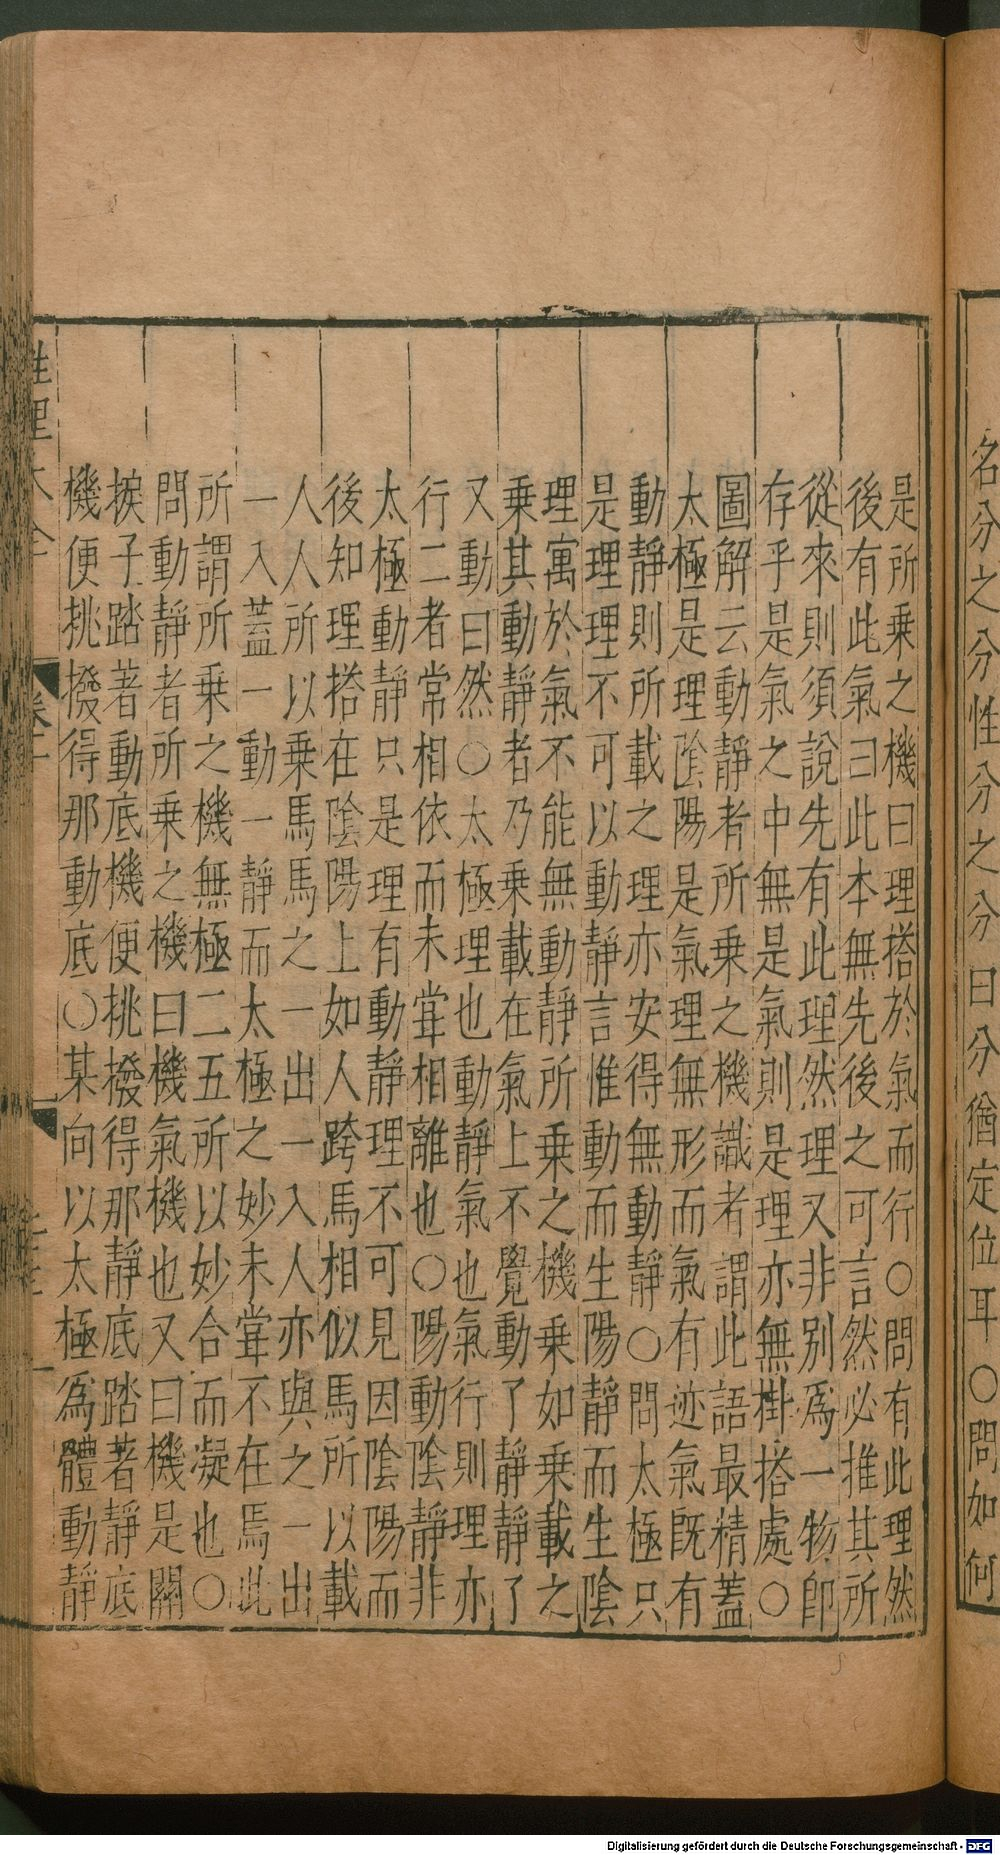 名分之分性分之分曰分猶定位耳○問如何
是所乘之機曰理搭於氣而行○問有此理然
後有此氣曰此本無先後之可言然必推其所
從來則須說先有此理然理又非別爲一物卽
存乎是氣之中無是氣則是理亦無掛搭處○
圖解云動靜者所乘之機識者謂此語最精蓋
太極是理陰陽是氣理無形而氣有迹氣旣有
動靜則所載之理亦安得無動靜○問太極只
是理理不可以動靜言惟動而生陽靜而生陰
理寓於氣不能無動靜所乘之機乘如乘載之
乘其動靜者乃乘載在氣上不覺動了靜靜了
又動曰然○太極理也動靜氣也氣行則理亦
行二者常相依而未甞相離也○陽動陰靜非
太極動靜只是理有動靜理不可見因陰陽而
後知理搭在陰陽上如人跨馬相似馬所以載
人人所以乘馬馬之一出一入人亦與之一出
一入蓋一動一靜而太極之妙未甞不在焉此
所謂所乘之機無極二五所以妙合而凝也○
問動靜者所乘之機曰機氣機也又曰機是關
捩子踏著動底機便挑撥得那靜底踏著靜底
機便挑撥得那動底○某向以太極爲體動靜
性理大全
Digitalisierung gefördert durch die Deutsche Forschungsgemeinschaft - DFG